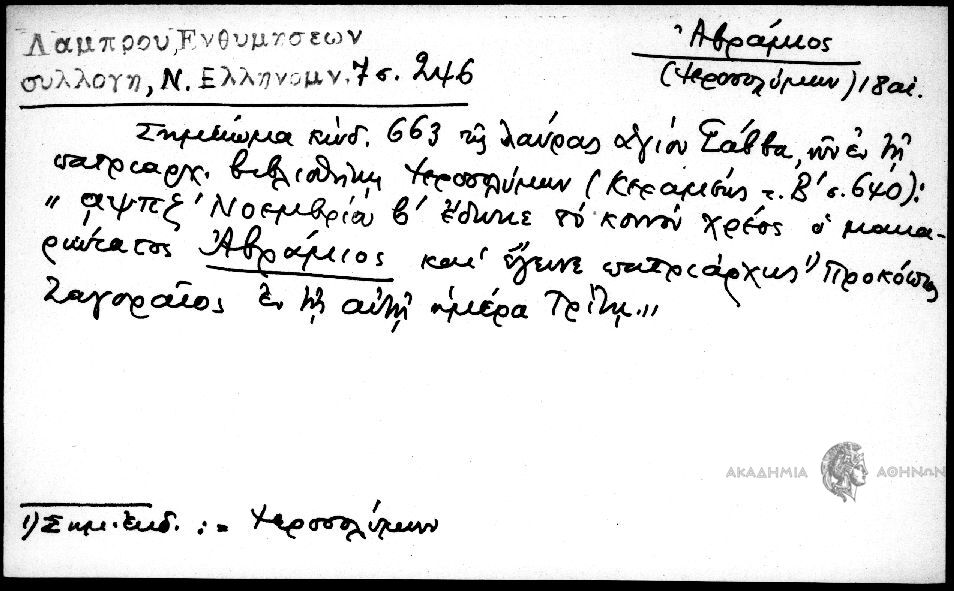 Λαμπρου, Ενθυμησεων
συλλογη, Ν. Ελληνομν. 7 σ. 246
Ἀβράμιος
(Ἱεροσολύμων) 18 αἰ.
Σημείωμα κώδ. 663 τῆς λαύρας ἁγίου Σάββα, νῦν ἐν τῇ
πατριαρχ. βιβλιοθήκῃ Ἱεροσολύμων (Κεραμεὺς τ. Β΄ σ. 640):
"͵αψπζ΄ Νοεμβρίου β΄ ἔδωκε τὸ κοινὸν χρέος ὁ μακα-
ριώτατος Ἀβράμιος καὶ ἔγεινε πατριάρχης 1) Προκόπιος
Ζαγοραῖος ἐν τῇ αὐτῇ ἡμέρᾳ Τρίτῃ."
ΑΚΑΔΗΜΙΑ ΑΘΗΝΩΝ
1) Σημ. ἐκδ. : = Ἱεροσολύμων